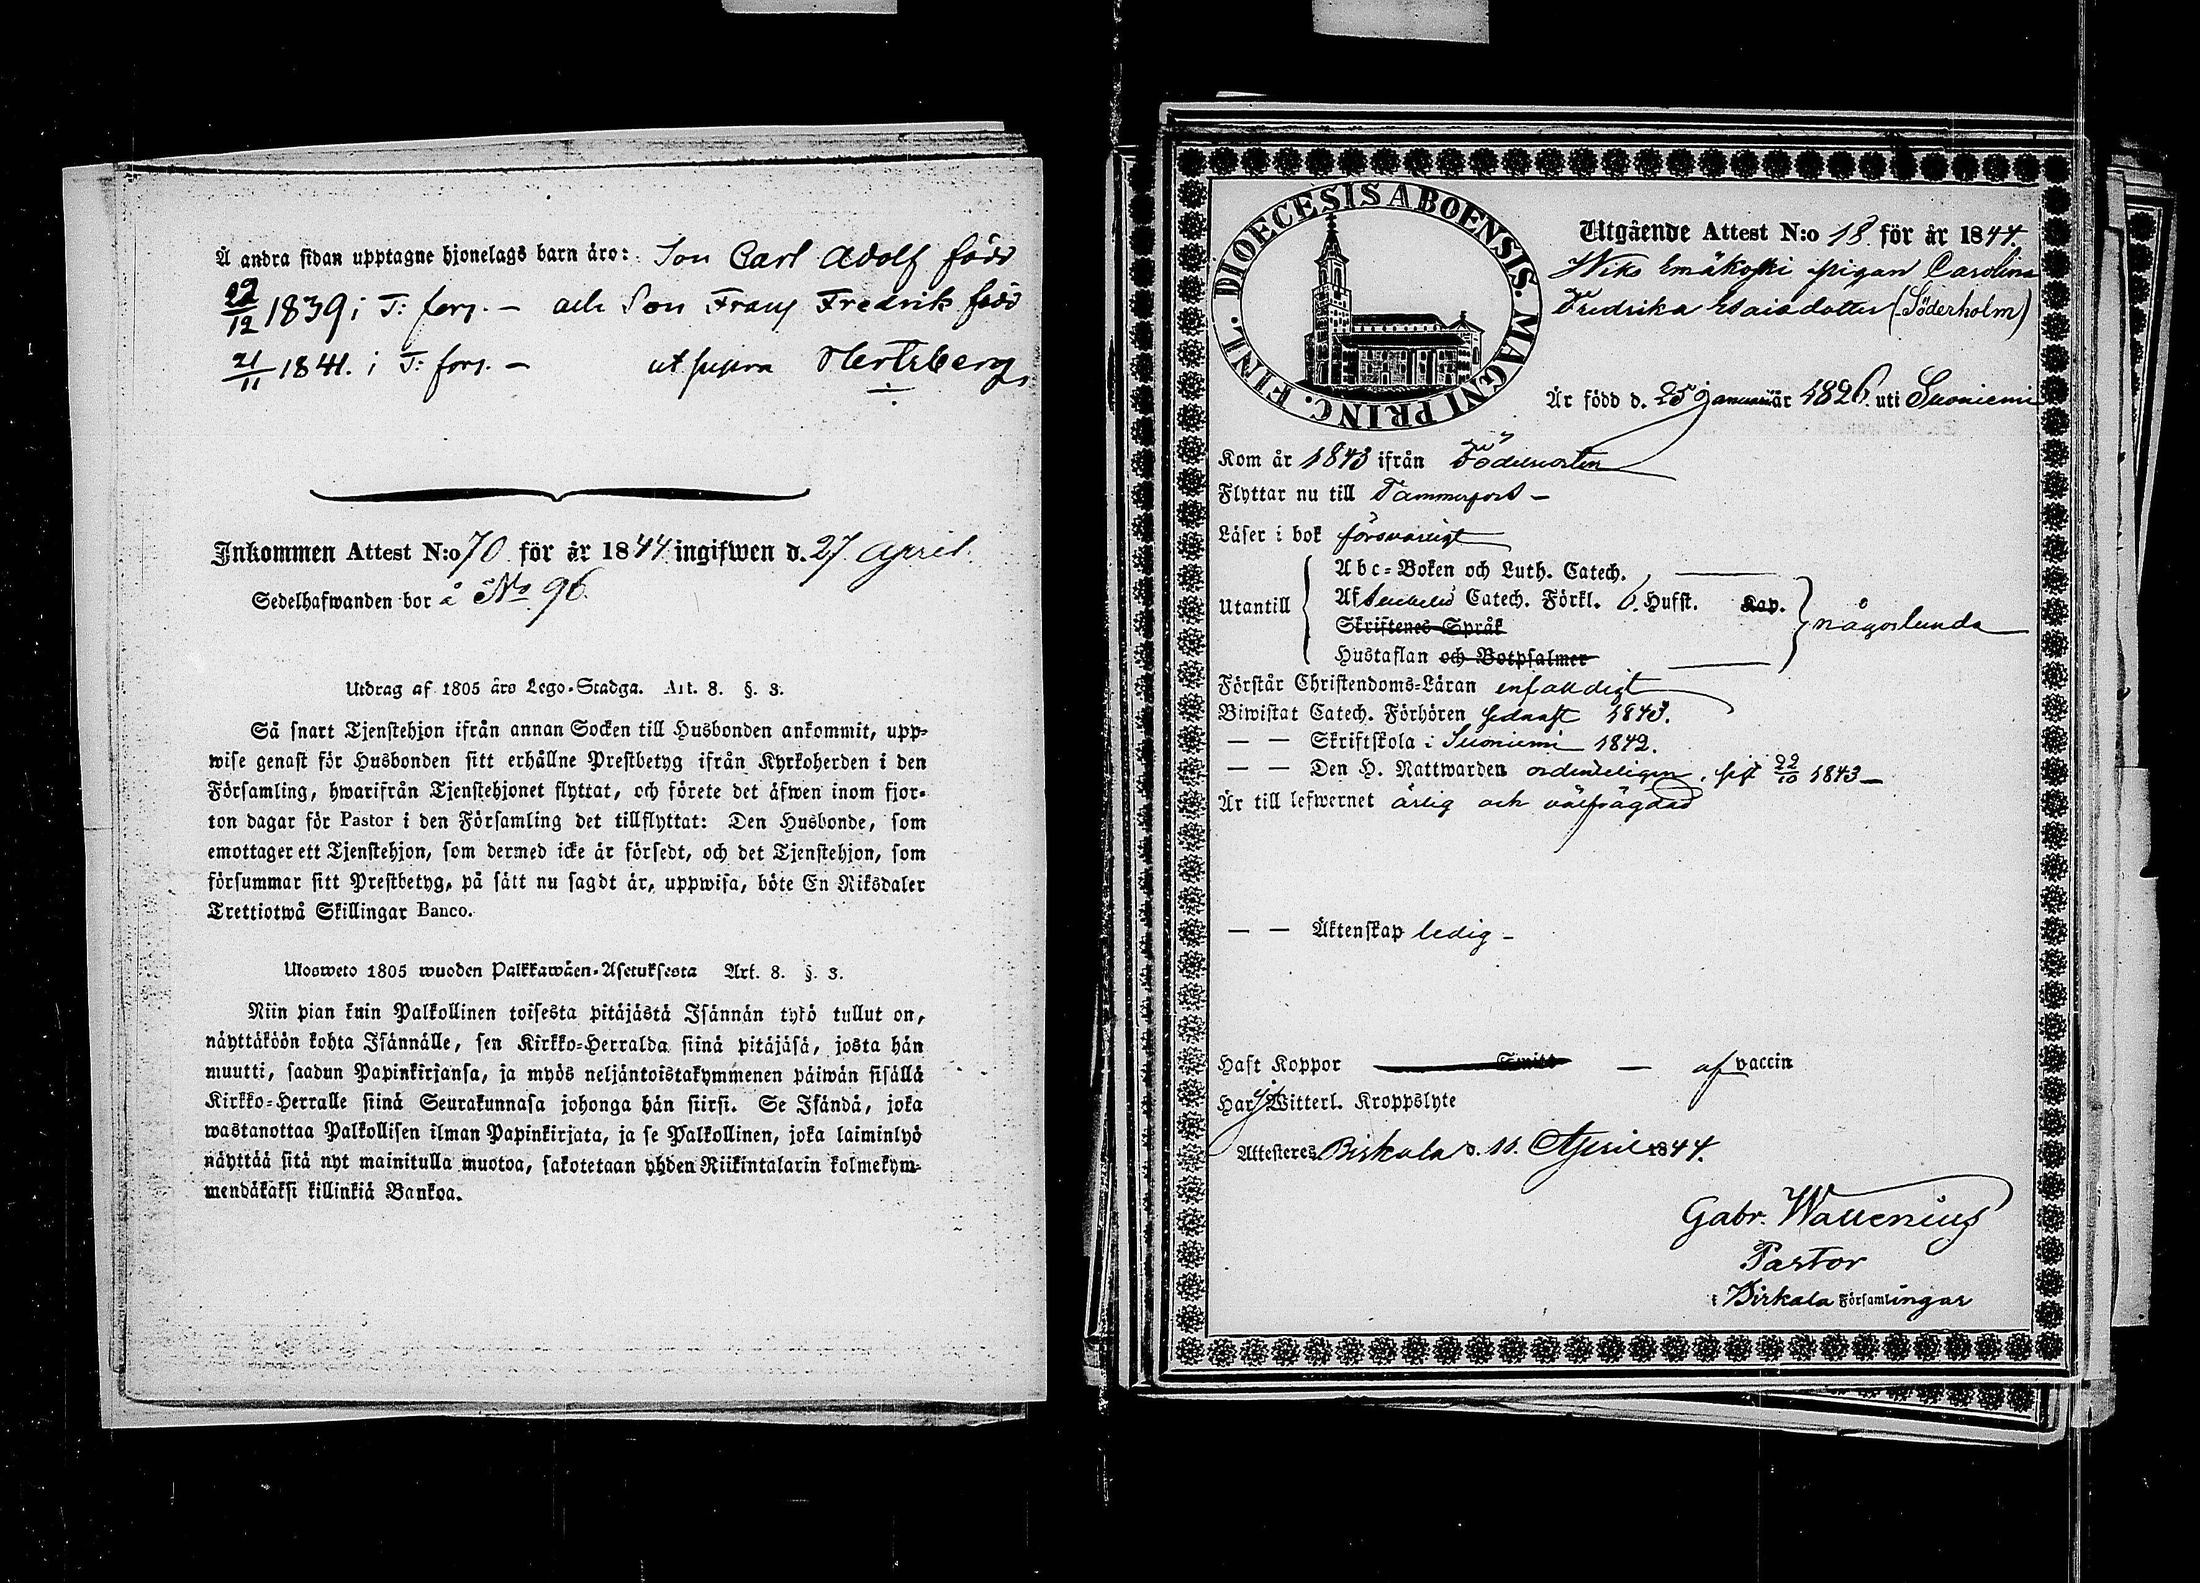 Å andra sidan upptagne hjonelags barn äro: Son Carl Adolf född
22/12 1839 i T: förs. – och Son Frans Fredrik född
21/11 1841. i T: förs. – ut supra Hertzberg
Inkommen Attest N:o 70 för år 1844 ingifwen d. 27 April.
Sedelhafwanden bor å No 96
Utdrag af 1805 års Lego-Stadga. Art. 8. §. 3.
Så snart Tjenstehjon ifrån annan Socken till Husbonden ankommit, upp-
wise genast för Husbonden sitt erhållne Prestbetyg ifrån Kyrkoherden i den
Församling, hwarifrån Tjenstehjonet flyttat, och förete det äfwen inom fjor-
ton dagar för Pastor i den Församling det tillflyttat: Den Husbonde, som
emottager ett Tjenstehjon, som dermed icke är försedt, och det Tjenstehjon, som
försummar sitt Prestbetyg, på sätt nu sagdt är, uppwisa, böte En Riksdaler
Trettiotwå Skillingar Banco.
Ulosweto 1805 wuoden Palkkawäen-Asetuksesta Art. 8. §. 3.
Niin pian kuin Palkollinen toisesta pitäjästä Isännän työ tullut on,
näyttäköön kohta Isännälle, sen Kirkko-Herralda siinä pitäjäsä, josta hän
muutti, saadun Papinkirjansa, ja myös neljäntoistakymmenen päiwän sisällä
Kirkko-Herralle siinä Seurakunnasa johonga hän siirsi. Se Isändä, joka
wastanottaa Palkollisen ilman Papinkirjata, ja se Palkollinen, joka laiminlyö
näyttää sitä nyt mainitulla muotoa, sakotetaan yhden Riikintalarin kolmekym-
mendäkaksi killinkiä Bankoa.
DIOECESIS ABOENSIS. MAGNI PRINC. FINL.
Utgående Attest N:o 18 för år 1844.
Wiks Emäkoski pigan Carolina
Fredrika Esaisdotter (Söderholm)
Är född d. 25 Januari år 1826. uti Suoniemi
Kom år 1843 ifrån Födelseorten
Flyttar nu till Tammerfors –
Läser i bok försvarligt
Abc-Boken och Luth. Catech.
Utantill Af Catech. Förkl. 6. Hufst. Kap. någorlunda
Skriftenes Språk
Hustaflan och Botpsalmer
Förstår Christendoms-Läran enfaldigt
Biwistat Catech. Förhören sednast 1843.
— — Skriftskola i Suoniemi 1842.
— — Den H. Nattwarden ordenteligen, sist 22/10 1843 –
Är till lefwernet ärlig och välfrägdad
— — Äktenskap ledig –
Haft Koppor — af vaccin
Har ej Witterl. Kroppslyte
Attesteres Birkala d. 11. April 1844.
Gabr. Wallenius
Pastor
i Birkala Församlingar